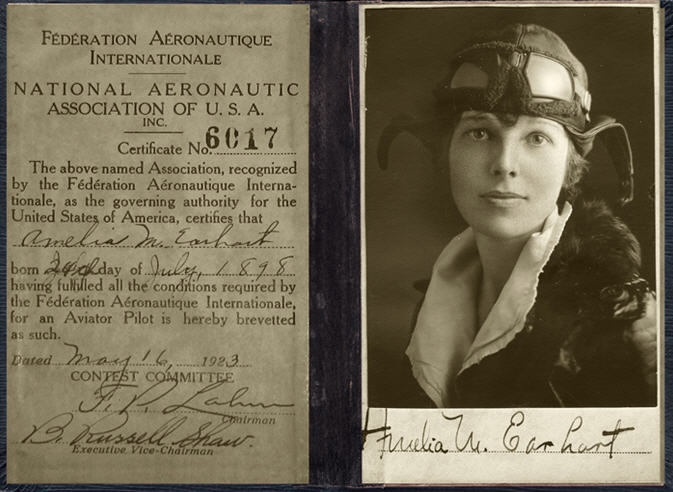 FÉDÉRATION AÉRONAUTIQUE
INTERNATIONALE
NATIONAL AERONAUTIC
ASSOCIATION OF U. S. A.
INC.
Certificate No. 6017
The above named Association, recognized
by the Fédération Aéronautique Interna-
tionale, as the governing authority for the
United States of America, certifies that
Amelia M. Earhart
born day of July, 1898
having fulfilled all the conditions required by
the Fédération Aéronautique Internationale,
for an Aviator Pilot is hereby brevetted
as such.
Dated May 16, 1923
CONTEST COMMITTEE
F. P. Lahm
Chairman
B. Russell Shaw.
Executive Vice-Chairman
Amelia M. Earhart